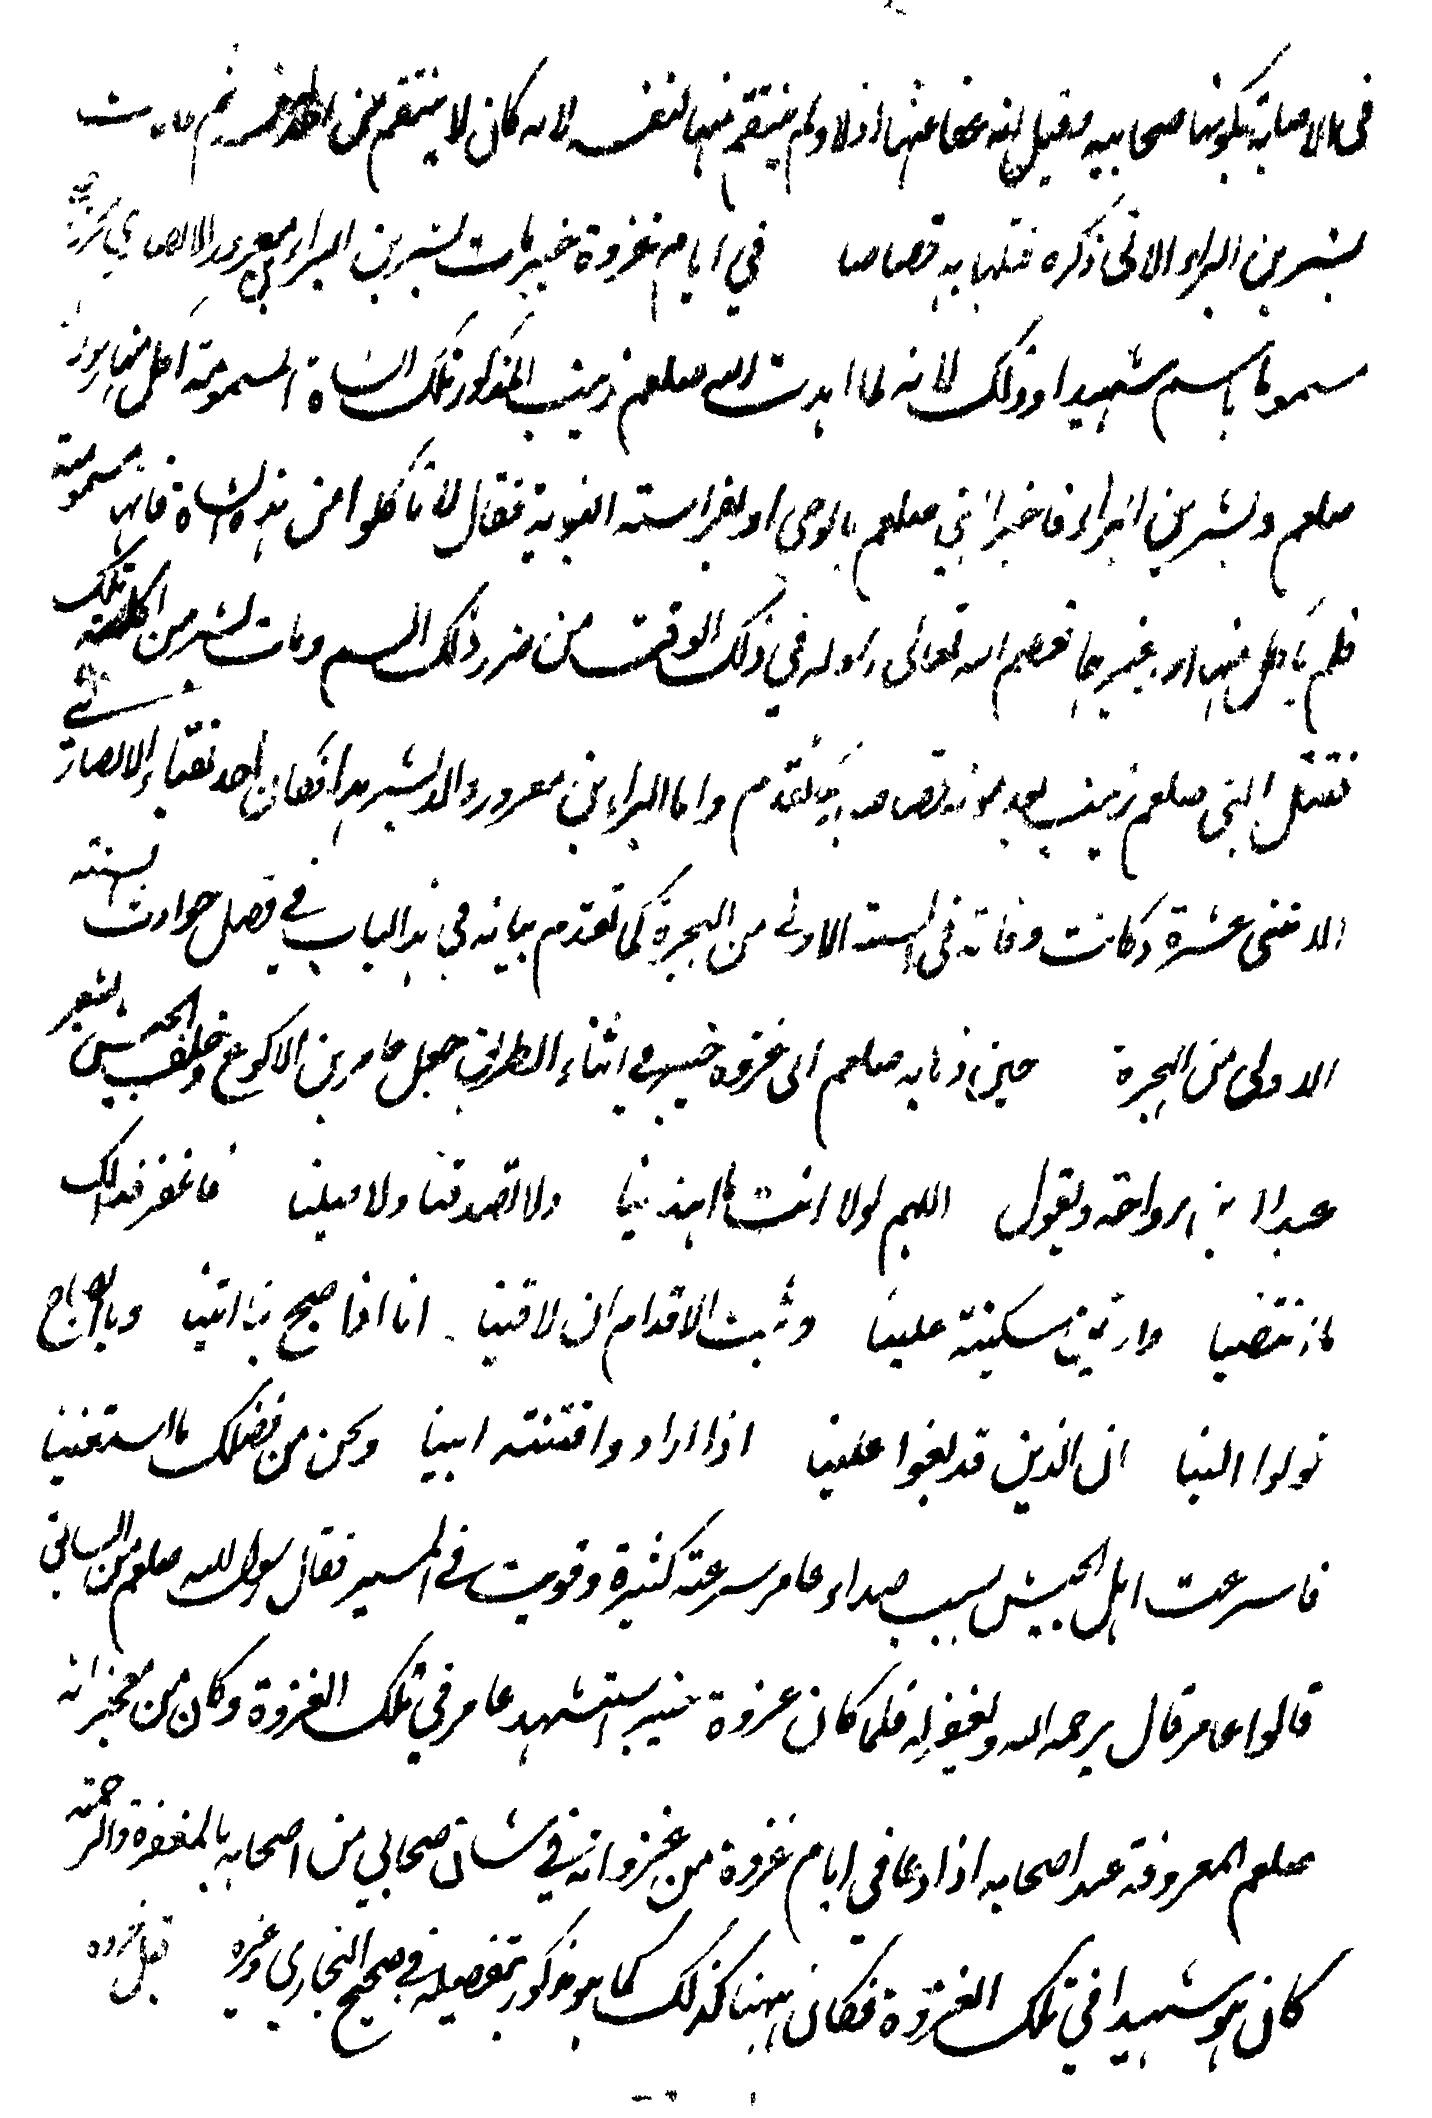 في الاصابة بكونها صحابيه وقيل انه عفا عنها اولا ولم ينتقم منها لنفسه لانه كان لا ينتقم من احد لنفسه ثم مات
بشر بن البراء الاتى ذكره فقتلها به قصاصا في ايام غزوة خيبر مات بشر بن البراء بن معرور الانصاري
مسموما بالسم شهيدا وذلك لانه لما اهدت اليه صلعم زينب المذكورة تلك الشاة المسمومة اكل منها رسول
صلعم وبشر بن البراء فاخبر النبي صلعم بالوحى او بفراسته النبوية فقال لا تاكلوا من هذه الشاة فانها مسمومة
فلم ياكل منها احد غيرهما فعصم الله تعالى رسوله في ذلك الوقت من ضرر ذلك السم ومات بشر من اكلته تلك
فقتل النبى صلعم زينب بعد موته قصاصا به كما تقدم واما البراء بن معرور والد بشر هذا فكان احد نقباء الانصار
الاثنى عشرة وكانت وفاته فى السنة الاولى من الهجرة كما تقدم بيانه في هذا الباب في فصل حوادث السنة
الاولى من الهجرة حين ذهابه صلعم الى غزوة خيبر في اثناء الطريق جعل عامر بن الاكوع خلف الجيش بشعر
عبد الله بن رواحة ويقول اللهم لولا انت ما اهتدينا ولا تصدقنا ولا صلينا فاغفر فداء لك
ما اقتفينا والقين سكينة علينا وثبت الاقدام ان لاقينا انا اذا صيح بنا اتينا وبالصياح
عولوا علينا ان الذين قد بغوا علينا اذا ارادوا فتنة ابينا ونحن من فضلك ما استغنينا
فاسرعت ابل الجيش بسبب حداء عامر سرعة كثيرة وقويت في المسير فقال رسول الله صلعم من السائق
قالوا عامر قال يرحمه الله ويغفر له فلما كان غزوة خيبر استشهد عامر في تلك الغزوة وكان من معجزاته
صلعم المعروفة عند اصحابه اذا دعا فى ايام غزوة من غزواته في شان صحابي من اصحابه بالمغفرة والرحمة
كان هو شهيدا في تلك الغزوة فكان ههنا كذلك كما هو مذكور بتفصيله في صحيح البخاري وغيره قبل غزوة